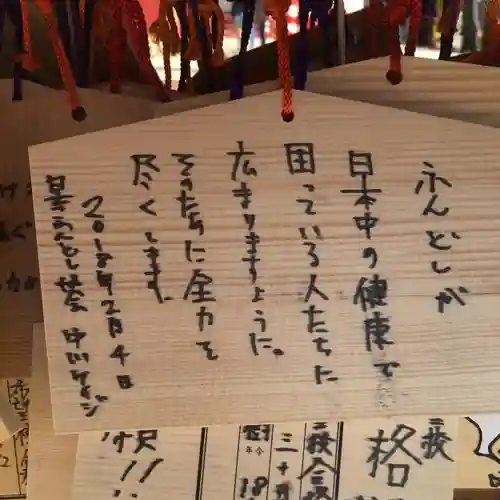 ふんどしが
日本中の健康で
困っている人たちに
広まりますように。
そのために全力を
尽くします。
2018年2月4日
日本ふんどし協会 中川ケイジ
格
18
!!